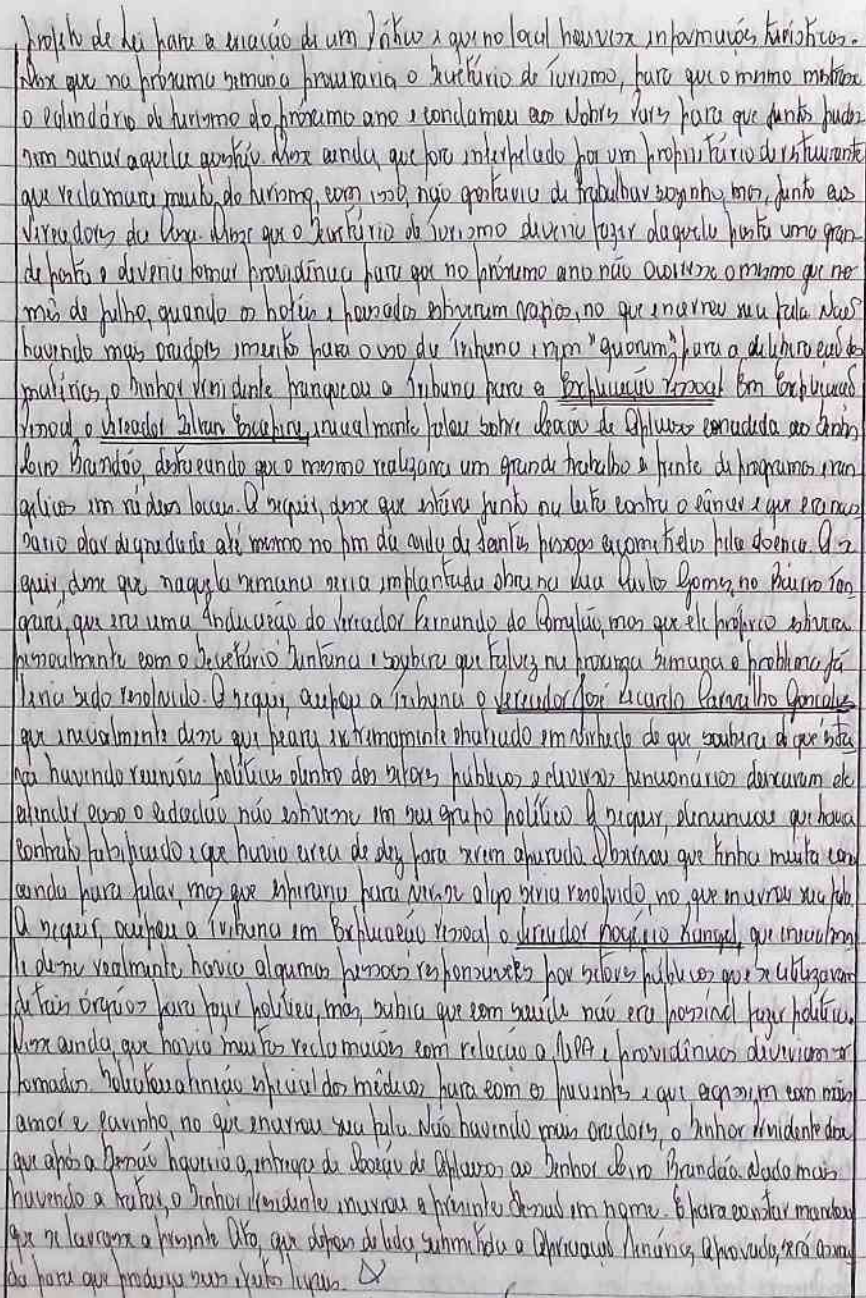 Projeto de Lei para a criação de um Pórtico e que no local houvesse informações turísticas.
Disse que na próxima semana procuraria o Secretário de Turismo, para que o mesmo mostrasse
o calendário de turismo do próximo ano e conclamou aos Nobres Pares para que juntos pudes-
sem sanar aquela questão. Disse ainda, que fora interpelado por um proprietário de restaurante
que reclamara muito do turismo, com isso, não gostaria de trabalhar sozinho, mas, junto aos
Vereadores da Casa. Disse que o Secretário de Turismo deveria fazer daquela pasta uma gran-
de pasta e deveria tomar providência para que no próximo ano não ocorresse o mesmo que no
mês de julho, quando os hotéis e pousadas estiveram vazios, no que encerrou sua fala. Não
havendo mais oradores inscritos para o uso da Tribuna e nem "quorum" para a deliberação das
matérias, o Senhor Presidente franqueou a Tribuna para a Explicação Pessoal. Em Explicação
Pessoal o Vereador Silvan Escapini, inicialmente falou sobre Moção de Aplauso concedida ao Senhor
Brandão, destacando que o mesmo realizara um grande trabalho à frente de programas evan-
gélicos em rádios locais. A seguir, disse que estava junto na luta contra o câncer e que era neces-
sário dar dignidade até mesmo no fim da vida de tantas pessoas acometidas pela doença. A se-
guir, disse que naquela semana seria implantada obra na Rua Carlos Gomes, no Bairro Tan-
gará, que era uma Indicação do Vereador Fernando do Comilão, mas que ele próprio estivera
pessoalmente com o Secretário Santana e soubera que talvez na próxima semana o problema já
teria sido resolvido. A seguir, ocupou a Tribuna o Vereador José Ricardo Carvalho Gonçalves
que inicialmente disse que ficara extremamente chateado em virtude de que soubera de que esta-
va havendo reuniões políticas dentro dos setores públicos e diversos funcionários deixavam de
atender caso o cidadão não estivesse em seu grupo político. A seguir, denunciou que havia
contrato falsificado e que havia cerca de dez para serem apurado. Observou que tinha muita coisa
ainda para falar, mas que esperaria para ver se algo seria resolvido, no que encerrou sua fala.
A seguir, ocupou a Tribuna em Explicação Pessoal o Vereador Rogério Rangel, que inicialmen-
te disse realmente havia algumas pessoas responsáveis por setores públicos que se utilizavam
de tais órgãos para fazer política, mas, sabia que com saúde não era possível fazer política.
Disse ainda, que havia muitas reclamações com relação a UPA e providências deveriam ser
tomadas. Solicitou atenção especial dos médicos para com os pacientes e que agissem com mais
amor e carinho, no que encerrou sua fala. Não havendo mais oradores, o Senhor Presidente disse
que após a Sessão haveria a entrega da Moção de Aplausos ao Senhor Brandão. Nada mais
havendo a tratar, o Senhor Presidente encerrou a presente Sessão em nome. E para constar mandou
que se lavrasse a presente Ata, que depois de lida, submetida a Apreciação Plenária, aprovada, será assina-
da para que produza seus efeitos legais.